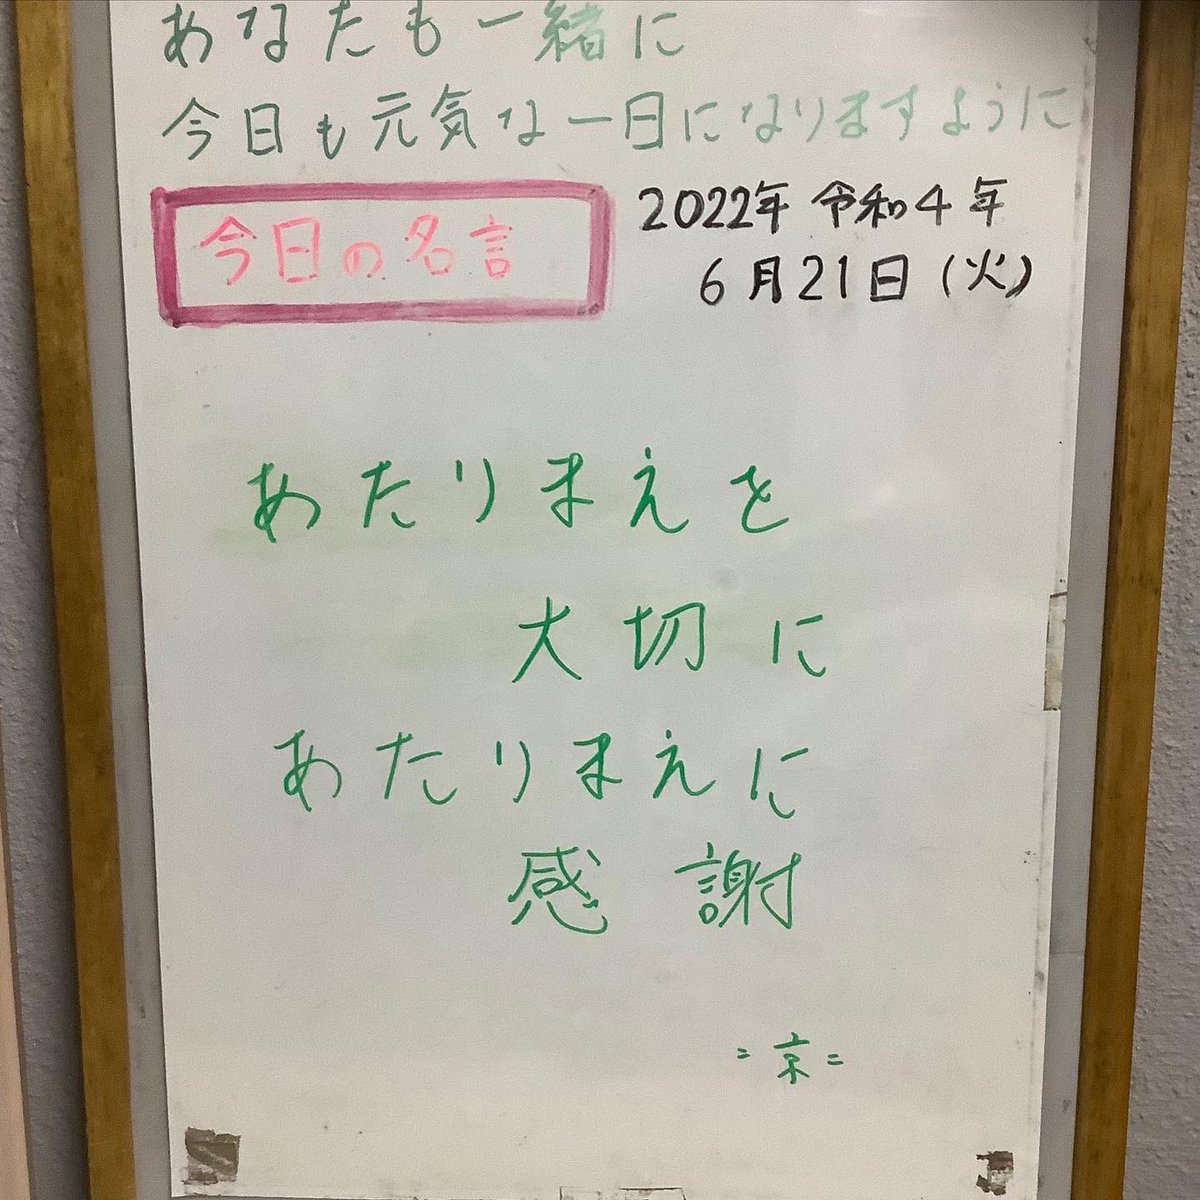 あなたも一緒に
今日も元気な一日になりますように
今日の名言
2022年 令和4年
6月21日(火)
あたりまえを
大切に
あたりまえに
感謝
=京=